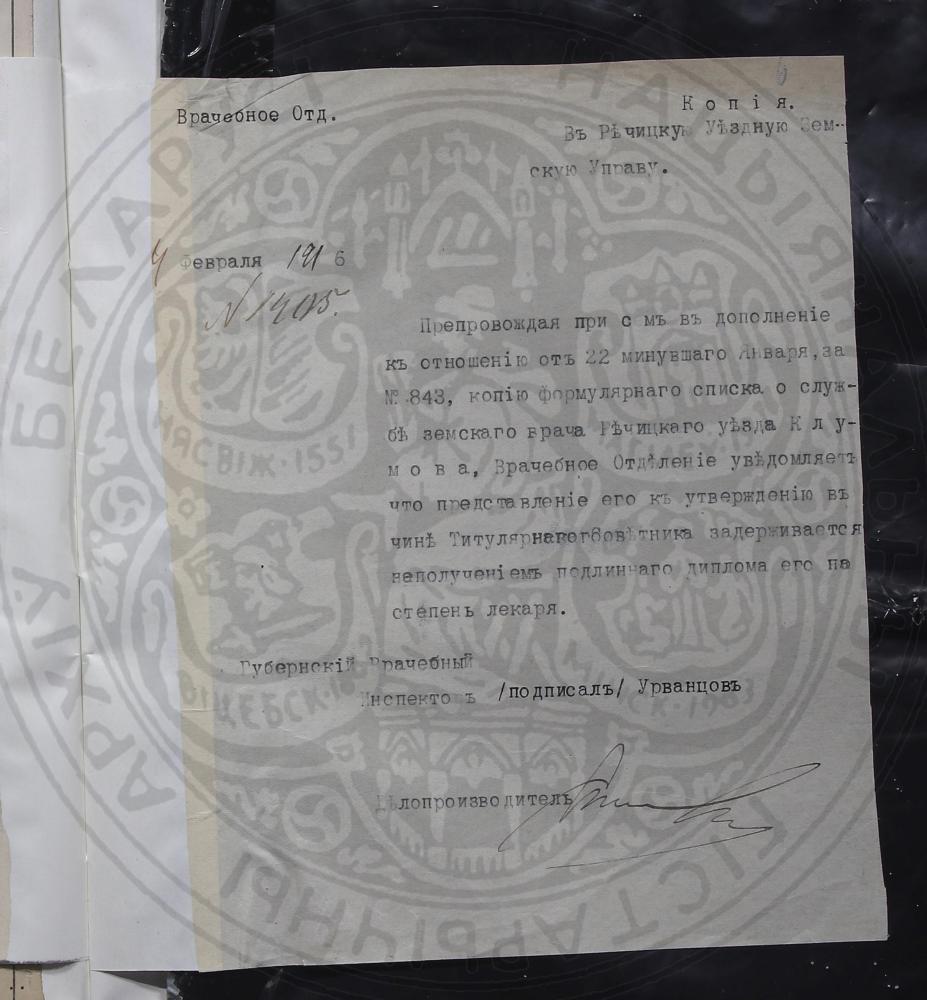 6
Врачебное Отд.
Копія.
Въ Рѣчицкую Уѣздную Зем-
скую Управу.
4 Февраля 1916
N 1405.
Препровождая при семъ въ дополненіе
къ отношенію отъ 22 минувшаго Января, за
№ 843, копію формулярнаго списка о служ-
бѣ земскаго врача Рѣчицкаго уѣзда Клу-
мова, Врачебное Отдѣленіе увѣдомляетъ
что представленіе его къ утвержденію въ
чинѣ Титулярнаго Совѣтника задерживается
неполученіемъ подлиннаго диплома его на
степень лекаря.
Губернскій Врачебный
Инспекторъ /подписалъ/ Урванцовъ
Дѣлопроизводитель
НАЦЫЯНАЛЬНЫ ГІСТАРЫЧНЫ АРХІЎ БЕЛАРУСІ
НЯСВІЖ·1551